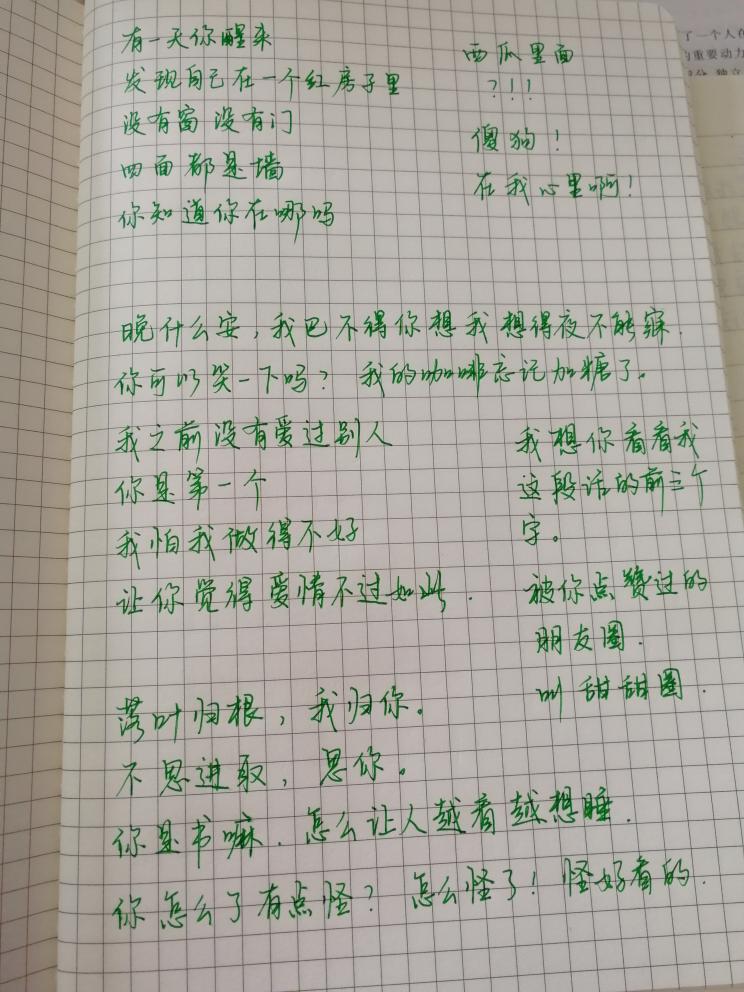 有一天你醒来
发现自己在一个红房子里
没有窗 没有门
四面都是墙
你知道你在哪吗
西瓜里面
?!!!
傻狗!
在我心里啊!
晚什么安,我巴不得你想我想得夜不能寐.
你可以笑一下吗? 我的咖啡忘记加糖了.
我之前没有爱过别人
你是第一个
我怕我做得不好
让你觉得爱情不过如此.
我想你看看我
这段话的前三个
字。
被你点赞过的
朋友圈.
叫甜甜圈.
落叶归根,我归你。
不思进取,思你。
你是书嘛.怎么让人越看越想睡.
你怎么了有点怪? 怎么怪了! 怪好看的.
了一个人在
的重要动力